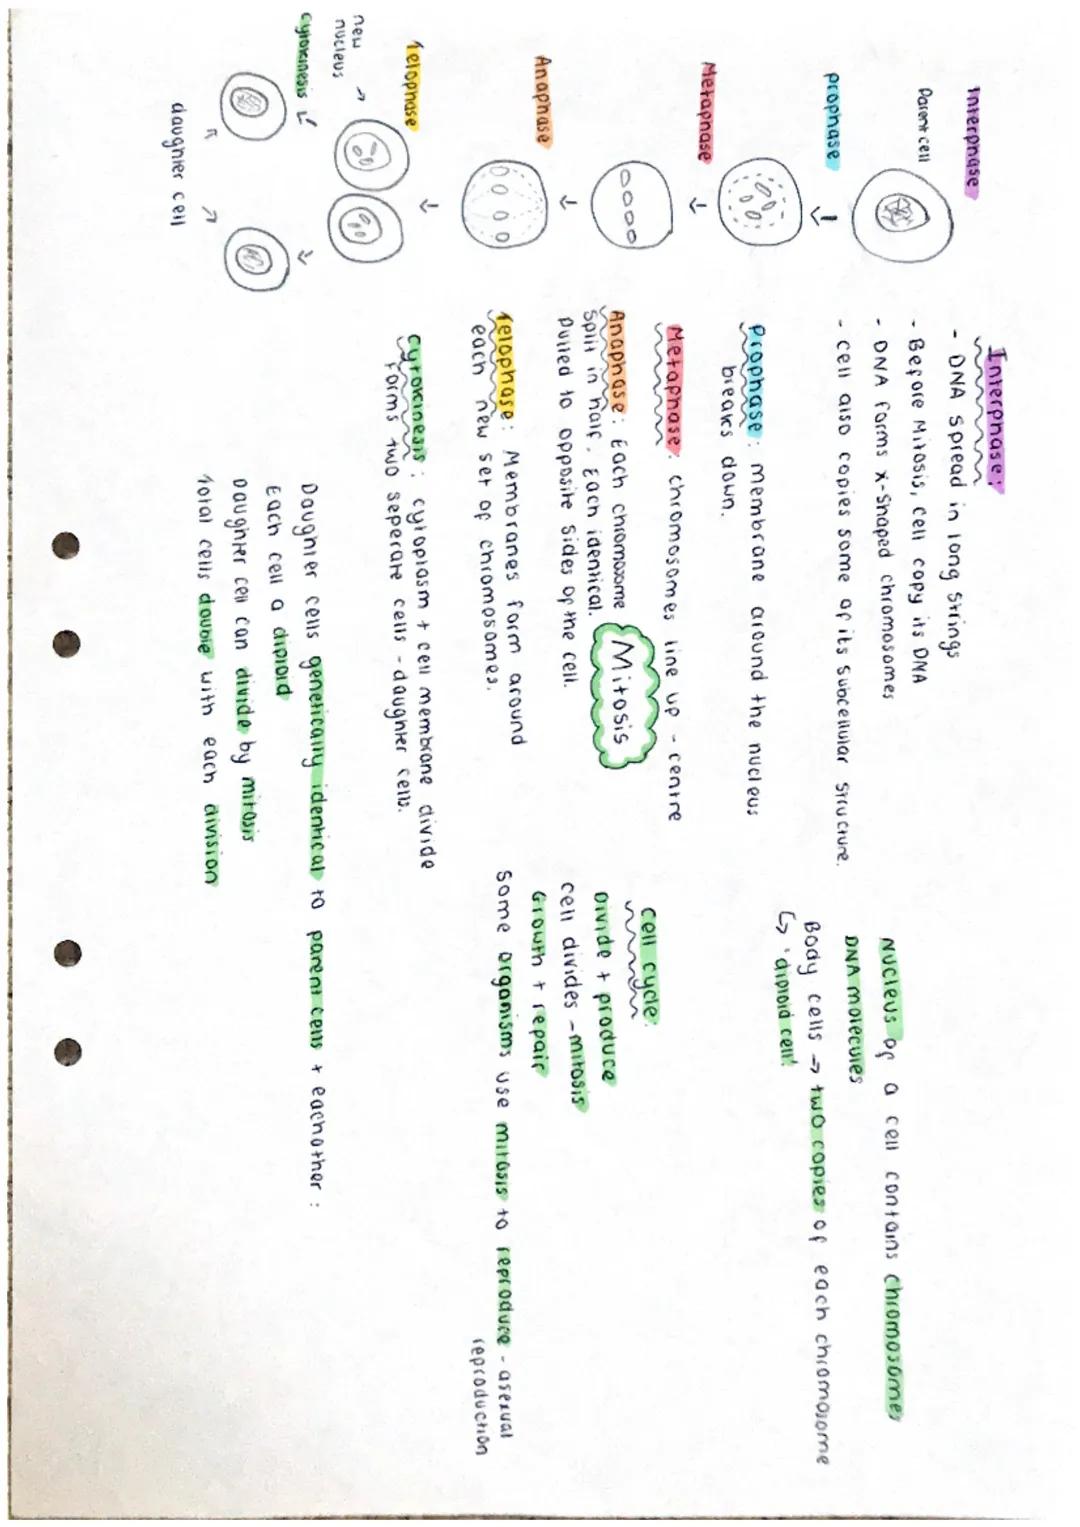 Interphase
Parent cell
prophase
Metaphase
Anaphase
Telophase
new
nucleus
cytokinesis
daughter cell
Interphase:
- DNA spread in long strings
- Before Mitosis, cell copy its DNA
- DNA forms x-shaped chromosomes
- cell also copies some of its subcellular structure.
Prophase: membrane around the nucleus
breaks down.
Metaphase: chromosomes line up - centre
Anaphase: Each chromosome
split in half. Each identical.
Pulled to opposite sides of the cell.
Mitosis
Telophase: Membranes form around
each new set of chromosomes.
cytokinesis: cytoplasm + cell membrane divide
Forms two seperate cells - daughter cells.
Daughter cells genetically identical to parent cells + eachother:
Each cell a diploid
Daughter cell can divide by mitosis
Total cells double with each division
Nucleus of a cell contains chromosomes
DNA molecules
Body cells → two copies of each chromosome
↳ 'diploid cell'
cell cycle:
Divide + produce
cell divides - mitosis
Growth + repair
Some organisms use mitosis to reproduce - asexual
reproduction